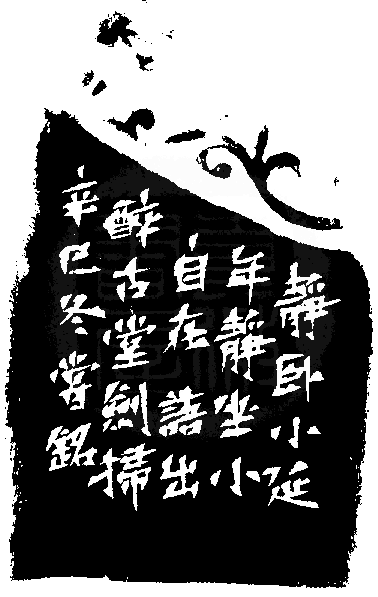 靜臥小延
年靜坐小
自在 語出
醉古堂劍掃
辛巳冬銘